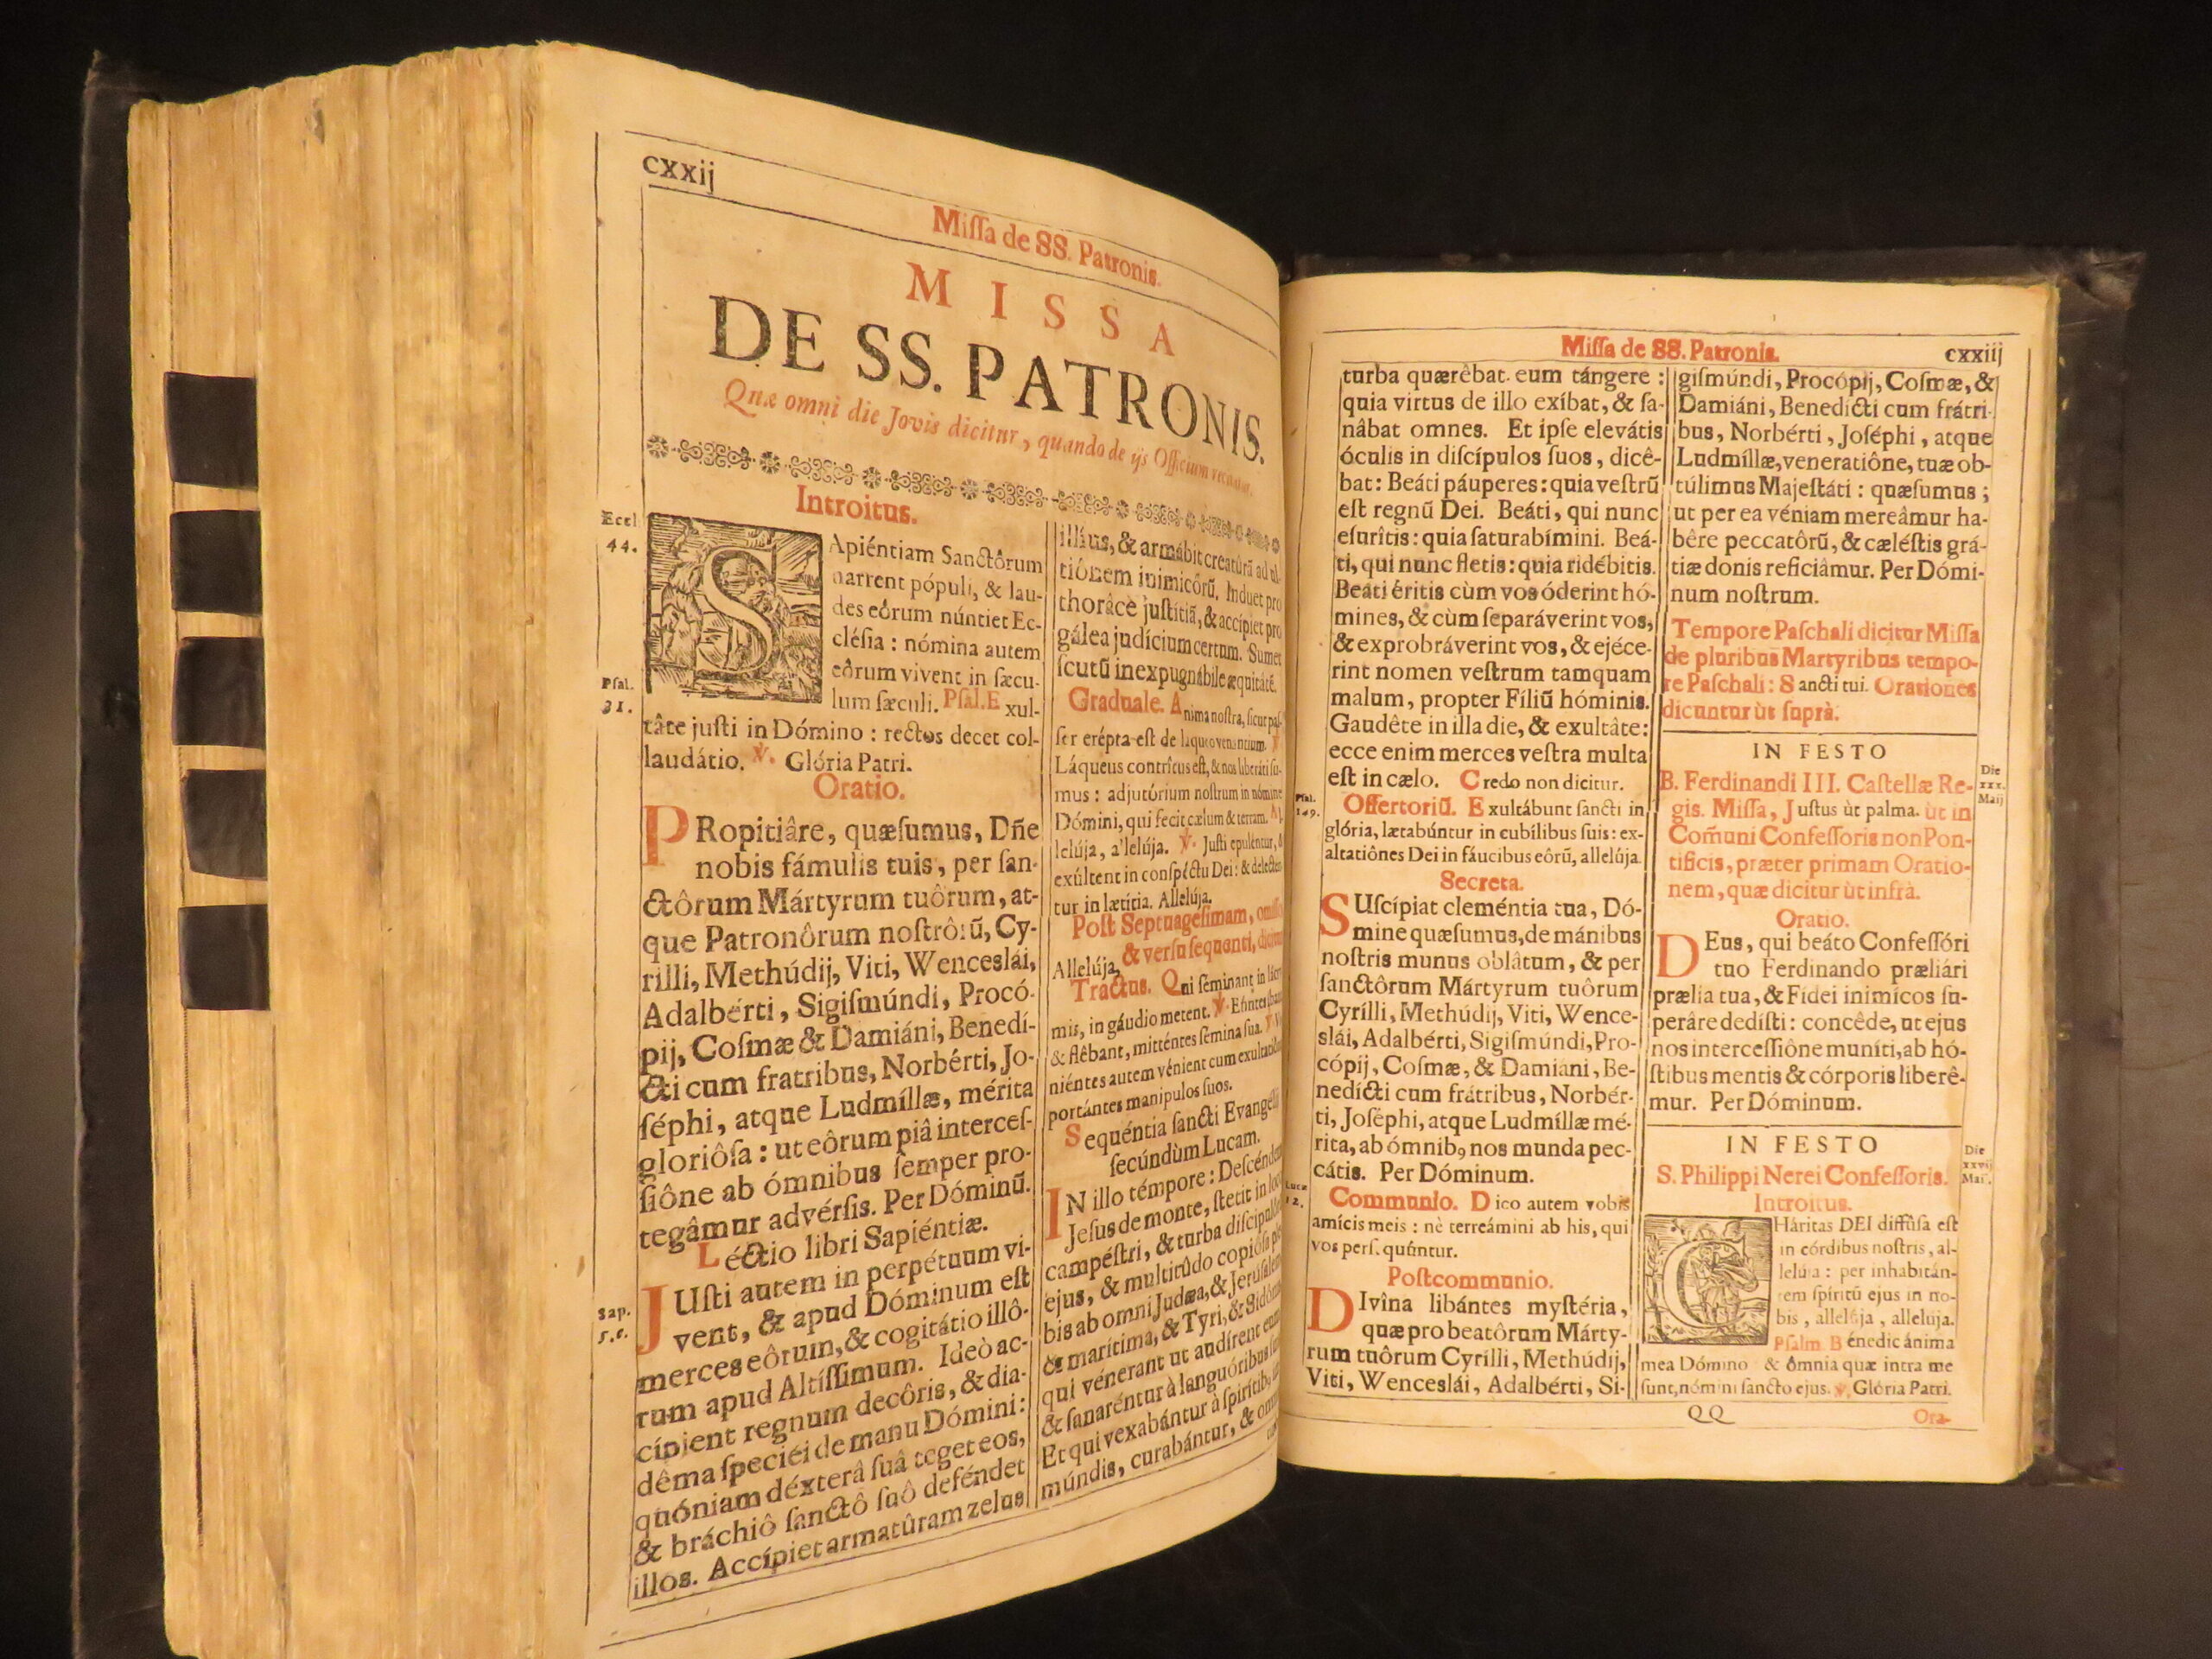 cxxij
Miſſa de SS. Patronis.
MISSA
DE SS. PATRONIS.
Quæ omni die Jovis dicitur, quando de ijs Officium
Introitus.
Eccl
44.
SApiéntiam Sanctôrum
narrent pópuli, & lau-
des eôrum núntiet Ec-
clésia : nómina autem
eôrum vivent in ſæcu-
lum ſæculi. Pſal. Exul-
Pſal.
31.
tâte juſti in Dómino : rectos decet col-
laudátio. ℣. Glória Patri.
Oratio.
PRopitiâre, quæſumus, Dñe
nobis fámulis tuis, per ſan-
ctôrum Mártyrum tuôrum, at-
que Patronôrum noſtrôrũ, Cy-
rilli, Methúdij, Viti, Wenceslái,
Adalbérti, Sigiſmúndi, Procó-
pij, Coſmæ & Damiáni, Benedí-
cti cum fratribus, Norbérti, Jo-
ſéphi, atque Ludmíllæ, mérita
gloriôſa : ut eôrum piâ interceſ-
ſiône ab ómnibus ſemper pro-
tegâmur advérſis. Per Dóminũ.
Léctio libri Sapiéntiæ.
Sap.
5.c.
JUſti autem in perpétuum vi-
vent, & apud Dóminum eſt
merces eôrum, & cogitátio illô-
rum apud Altíſſimum. Ideò ac-
cípient regnum decôris, & dia-
dêma ſpeciéi de manu Dómini:
quóniam déxterâ ſuâ teget eos,
& bráchiô ſanctô ſuô deféndet
illos. Accípiet armatûram zelus
illíus, & armábit creatûrã ad ul-
tiónem inimicôrũ. Induet pro
thorâce juſtitiã, & accípiet pro
gálea judícium certum. Sumet
ſcutũ inexpugnábile æquitátẽ.
Graduale. Anima noſtra, ſicut paſ-
ſer erépta eſt de laqueo venantium. ℣.
Láqueus contrîtus eſt, & nos liberáti ſu-
mus : adjutórium noſtrum in nómine
Dómini, qui fecit cælum & terram. Al-
lelúja, a'lelúja. ℣. Juſti epuléntur, &
exúltent in conſpéctu Dei : & delecten-
tur in lætitia. Allelúja.
Poſt Septuageſimam, omiſſo
Allelúja, & verſu ſequenti, dicitur
Tractus. Qui ſeminant in lácry-
mis, in gáudio metent. ℣. Eúntes ibant
& flêbant, mitténtes ſemina ſua. ℣. Ve-
niéntes autem vénient cum exultatiône
portántes manipulos ſuos.
Sequéntia ſancti Evangélij
ſecúndùm Lucam.
IN illo témpore : Deſcéndens
Jeſus de monte, ſtetit in loco
campéſtri, & turba diſcipulôrum
ejus, & multitûdo copióſa ple-
bis ab omni Judæa, & Jerúſalem,
& marítima, & Tyri, & Sidónis,
qui vénerant ut audírent eum
& ſanaréntur à languóribus ſuis.
Et qui vexabántur à ſpirítib,
múndis, curabántur, & omnis
cxxiij
Miſſa de SS. Patronis.
turba quærêbat eum tángere :
quia virtus de illo exíbat, & ſa-
nâbat omnes. Et ipſe elevátis
óculis in diſcípulos ſuos, dicê-
bat: Beáti páuperes: quia veſtrũ
eſt regnũ Dei. Beáti, qui nunc
eſurîtis: quia ſaturabímini. Beá-
ti, qui nunc fletis: quia ridébitis.
Beáti éritis cùm vos óderint hó-
mines, & cùm ſeparáverint vos,
& exprobráverint vos, & ejéce-
rint nomen veſtrum tamquam
malum, propter Fíliũ hóminis.
Gaudête in illa die, & exultâte:
ecce enim merces veſtra multa
eſt in cælo. Credo non dicitur.
Pſal.
149.
Offertoriũ. Exultábunt ſancti in
glória, lætabúntur in cubílibus ſuis: ex-
altatiônes Dei in fáucibus eôrũ, allelúja.
Secreta.
SUſcípiat cleméntia tua, Dó-
mine quæſumus, de mánibus
noſtris munus oblâtum, & per
ſanctôrum Mártyrum tuôrum
Cyrílli, Methúdij, Viti, Wence-
slái, Adalbérti, Sigiſmúndi, Pro-
cópij, Coſmæ, & Damiáni, Be-
nedícti cum frátribus, Norbér-
ti, Joſéphi, atque Ludmíllæ mé-
rita, ab ómnib9 nos munda pec-
cátis. Per Dóminum.
Lucæ
12.
Communio. Dico autem vobis
amícis meis : nè terreámini ab his, qui
vos perſequûntur.
Poſtcommunio.
DIvîna libántes myſtéria,
quæ pro beatôrum Márty-
rum tuôrum Cyrílli, Methúdij,
Viti, Wenceslái, Adalbérti, Si-
giſmúndi, Procópij, Coſmæ, &
Damiáni, Benedícti cum frátri-
bus, Norbérti, Joſéphi, atque
Ludmíllæ, veneratiône, tuæ ob-
túlimus Majeſtáti : quæſumus ;
ut per ea véniam mereâmur ha-
bêre peccatôrũ, & cæléſtis grá-
tiæ donis reficiâmur. Per Dómi-
num noſtrum.
Tempore Paſchali dicitur Miſſa
de pluribus Martyribus tempo-
re Paſchali : Sancti tui. Orationes
dicuntur ùt ſuprà.
IN FESTO
Die
xxx.
Maij
B. Ferdinandi III. Caſtellæ Re-
gis. Miſſa, Juſtus ùt palma. ùt in
Com̃uni Confeſſoris non Pon-
tificis, præter primam Oratio-
nem, quæ dicitur ùt infrà.
Oratio.
DEus, qui beáto Confeſſóri
tuo Ferdinando præliári
prælia tua, & Fídei inimícos ſu-
perâre dedíſti : concêde, ut ejus
nos interceſſiône muníti, ab hó-
ſtibus mentis & córporis liberê-
mur. Per Dóminum.
IN FESTO
Die
xxvij
Mai.
S. Philippi Nerei Confeſſoris.
Introitus.
CHáritas DEI diffûſa eſt
in córdibus noſtris, al-
lelúia : per inhabitán-
tem ſpíritũ ejus in no-
bis, allelúja, allelúja.
Pſalm. Bénedic ánima
mea Dómino & ômnia quæ intra me
ſunt, nómini ſancto ejus. ℣. Glória Patri.
QQ
Ora-